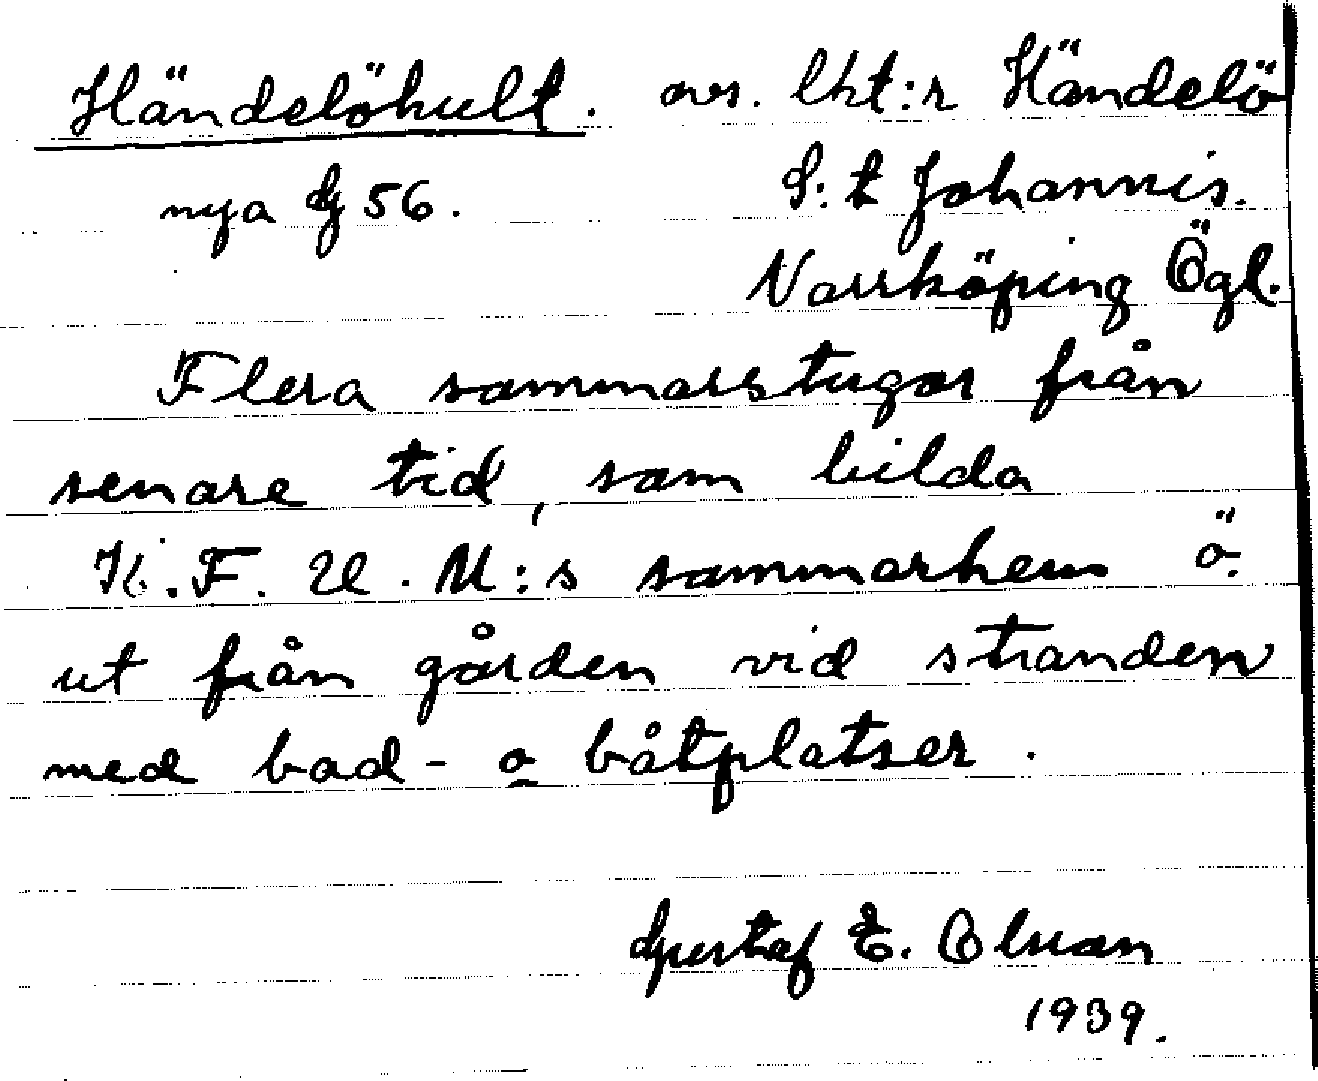 Händelöhult. avs. lht:r Händelö
nya G 56. S:t Johannis.
Norrköping Ögl.
Flera sommarstugor från
senare tid, som bilda
K.F.U.M:s sommarhem ö.
ut från gården vid stranden
med bad- o båtplatser.
Gustaf E. Olsson
1939.